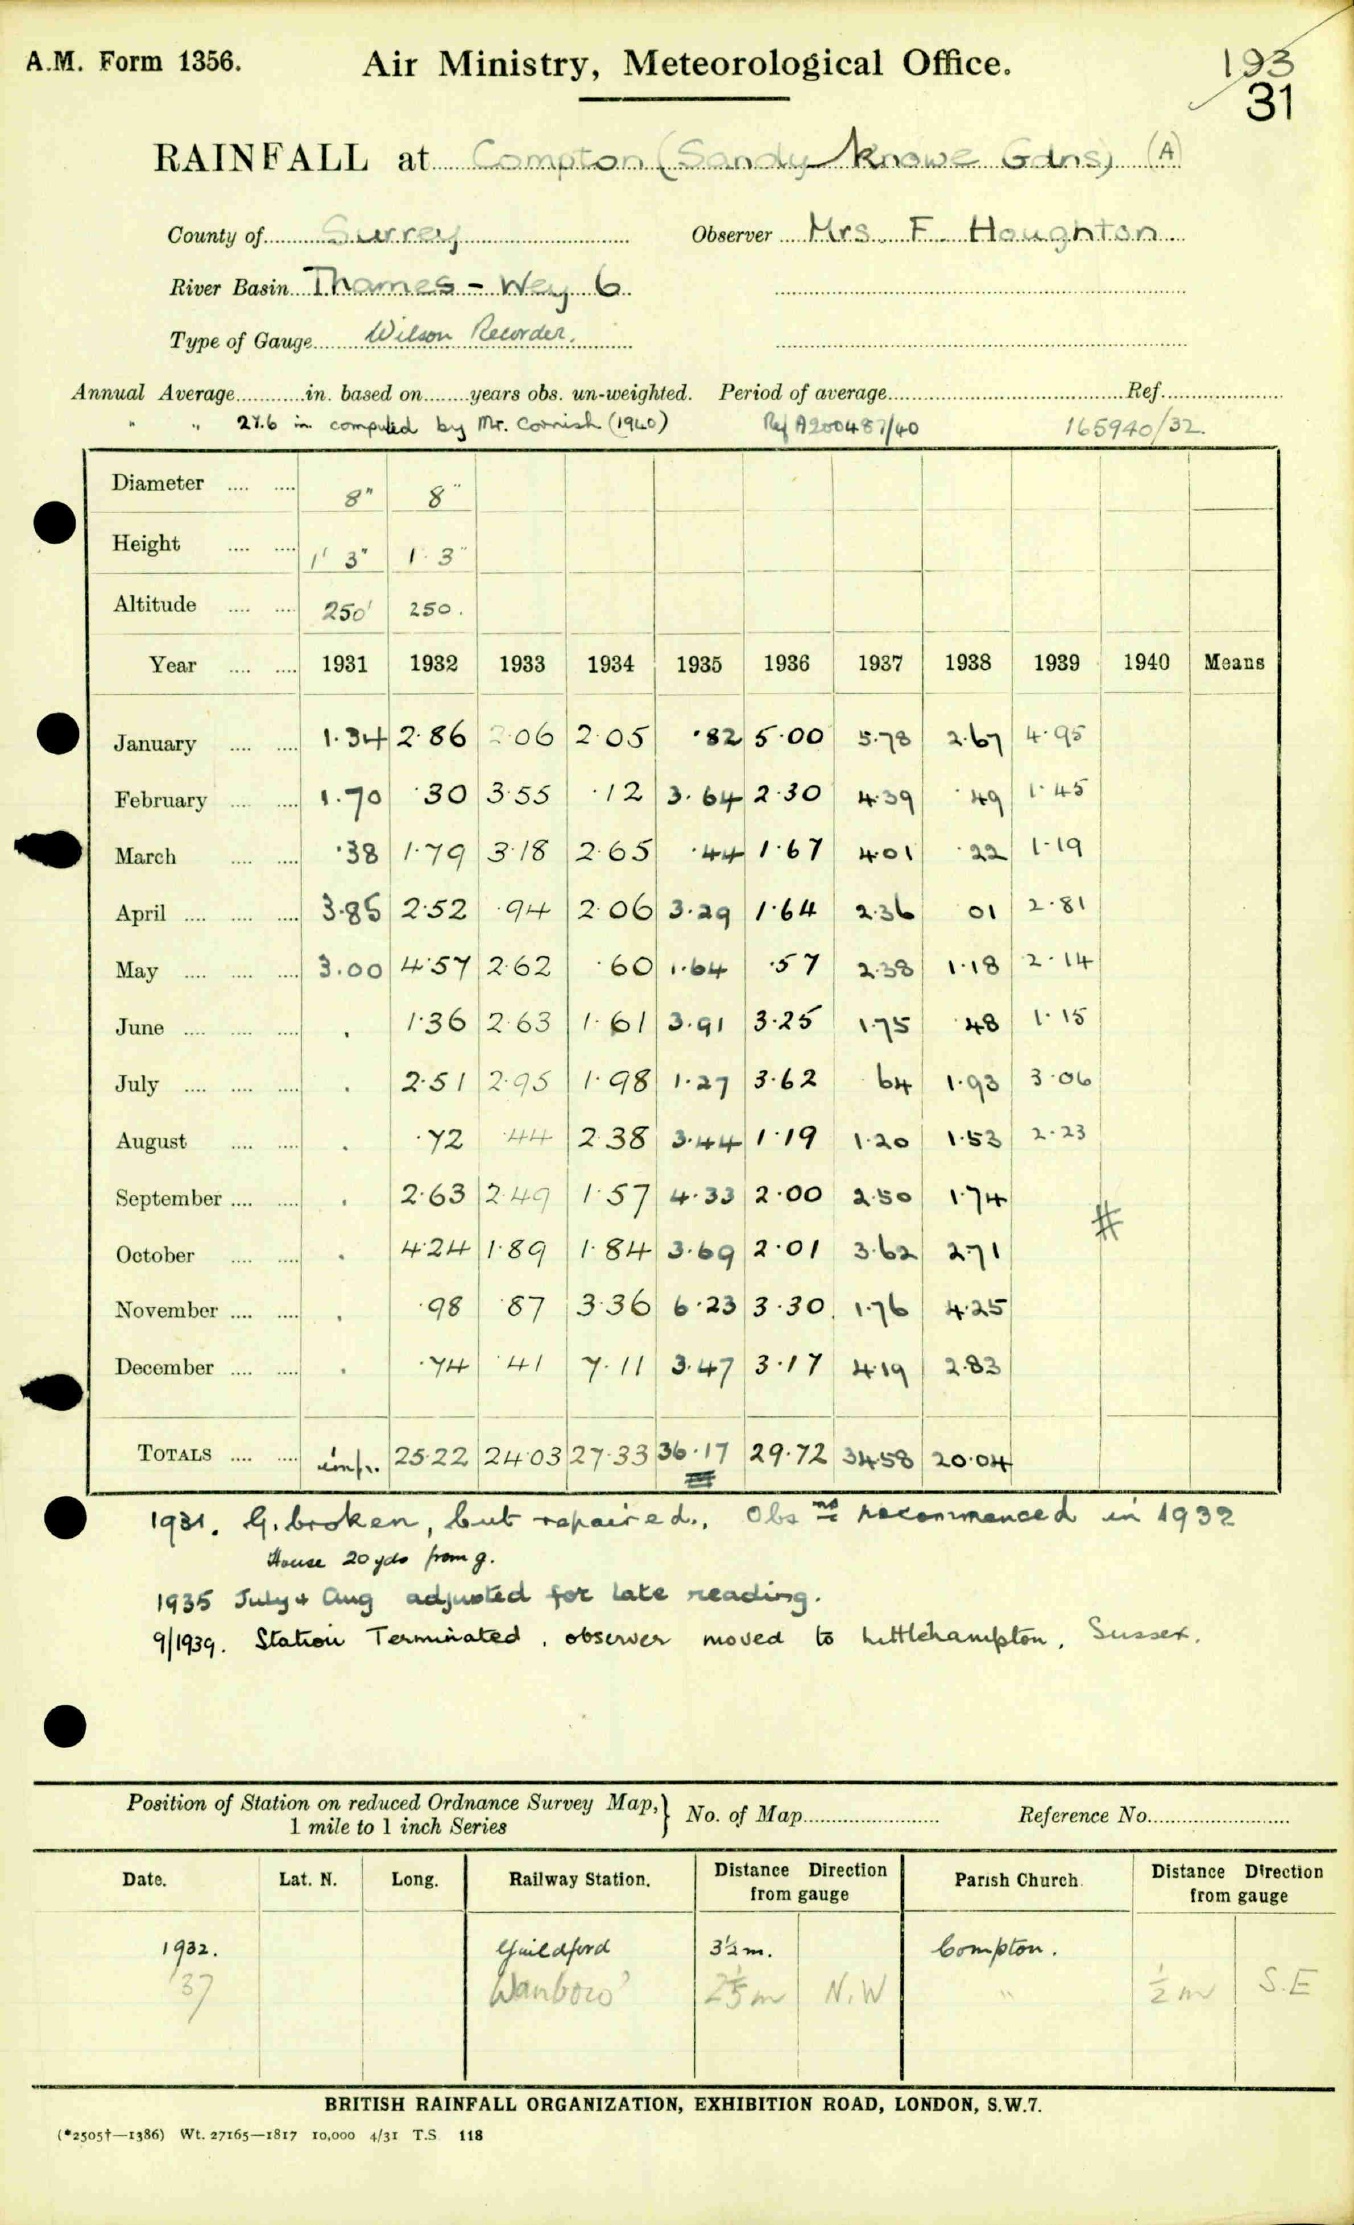 A.M. Form 1356. Air Ministry, Meteorological Office. 193
31
RAINFALL at Compton (Sandy Knowe Gdns) (A)
County of Surrey Observer Mrs. F. Houghton.
River Basin Thames - Wey 6
Type of Gauge Wilson Recorder.
Annual Average............in. based on........years obs. un-weighted. Period of average........................................Ref.....................
" " 27.6 in computed by Mr. Cornish (1940) Ref A200487/40 165940/32.
Diameter .... .... 8" 8"
Height .... .... 1' 3" 1 3"
Altitude .... .... 250' 250.
Year .... .... 1931 1932 1933 1934 1935 1936 1937 1938 1939 1940 Means
January .... .... 1.34 2.86 2.06 2.05 .82 5.00 5.78 2.67 4.95
February .... .... 1.70 .30 3.55 .12 3.64 2.30 4.39 .49 1.45
March .... .... .38 1.79 3.18 2.65 .44 1.67 4.01 .22 1.19
April .... .... .... 3.85 2.52 .94 2.06 3.29 1.64 2.36 01 2.81
May .... .... .... 3.00 4.57 2.62 .60 1.64 .57 2.38 1.18 2.14
June .... .... .... . 1.36 2.63 1.61 3.91 3.25 1.75 .48 1.15
July .... .... .... . 2.51 2.95 1.98 1.27 3.62 64 1.93 3.06
August .... .... . .72 .44 2.38 3.44 1.19 1.20 1.53 2.23
September .... .... . 2.63 2.49 1.57 4.33 2.00 2.50 1.74
#
October .... .... . 4.24 1.89 1.84 3.69 2.01 3.62 2.71
November .... .... . .98 .87 3.36 6.23 3.30. 1.76 4.25
December .... .... . .74 .41 7.11 3.47 3.17 4.19 2.83
TOTALS .... .... imp. 25.22 24.03 27.33 36.17 29.72 34.58 20.04
1931. G. broken, but repaired., Obsns recommenced in 1932
House 20 yds from g.
1935 July + Aug adjusted for late reading.
9/1939. Station Terminated, observer moved to Littlehampton, Sussex.
Position of Station on reduced Ordnance Survey Map, } No. of Map........................ Reference No.........................
1 mile to 1 inch Series
Date. Lat. N. Long. Railway Station. Distance Direction from gauge Parish Church. Distance Direction from gauge
1932. Guildford 3½ m. Compton.
'37 Wanboro' m N.W " ½ m S.E
BRITISH RAINFALL ORGANIZATION, EXHIBITION ROAD, LONDON, S.W.7.
(*2505†—1386) Wt. 27165—1817 10,000 4/31 T.S 118